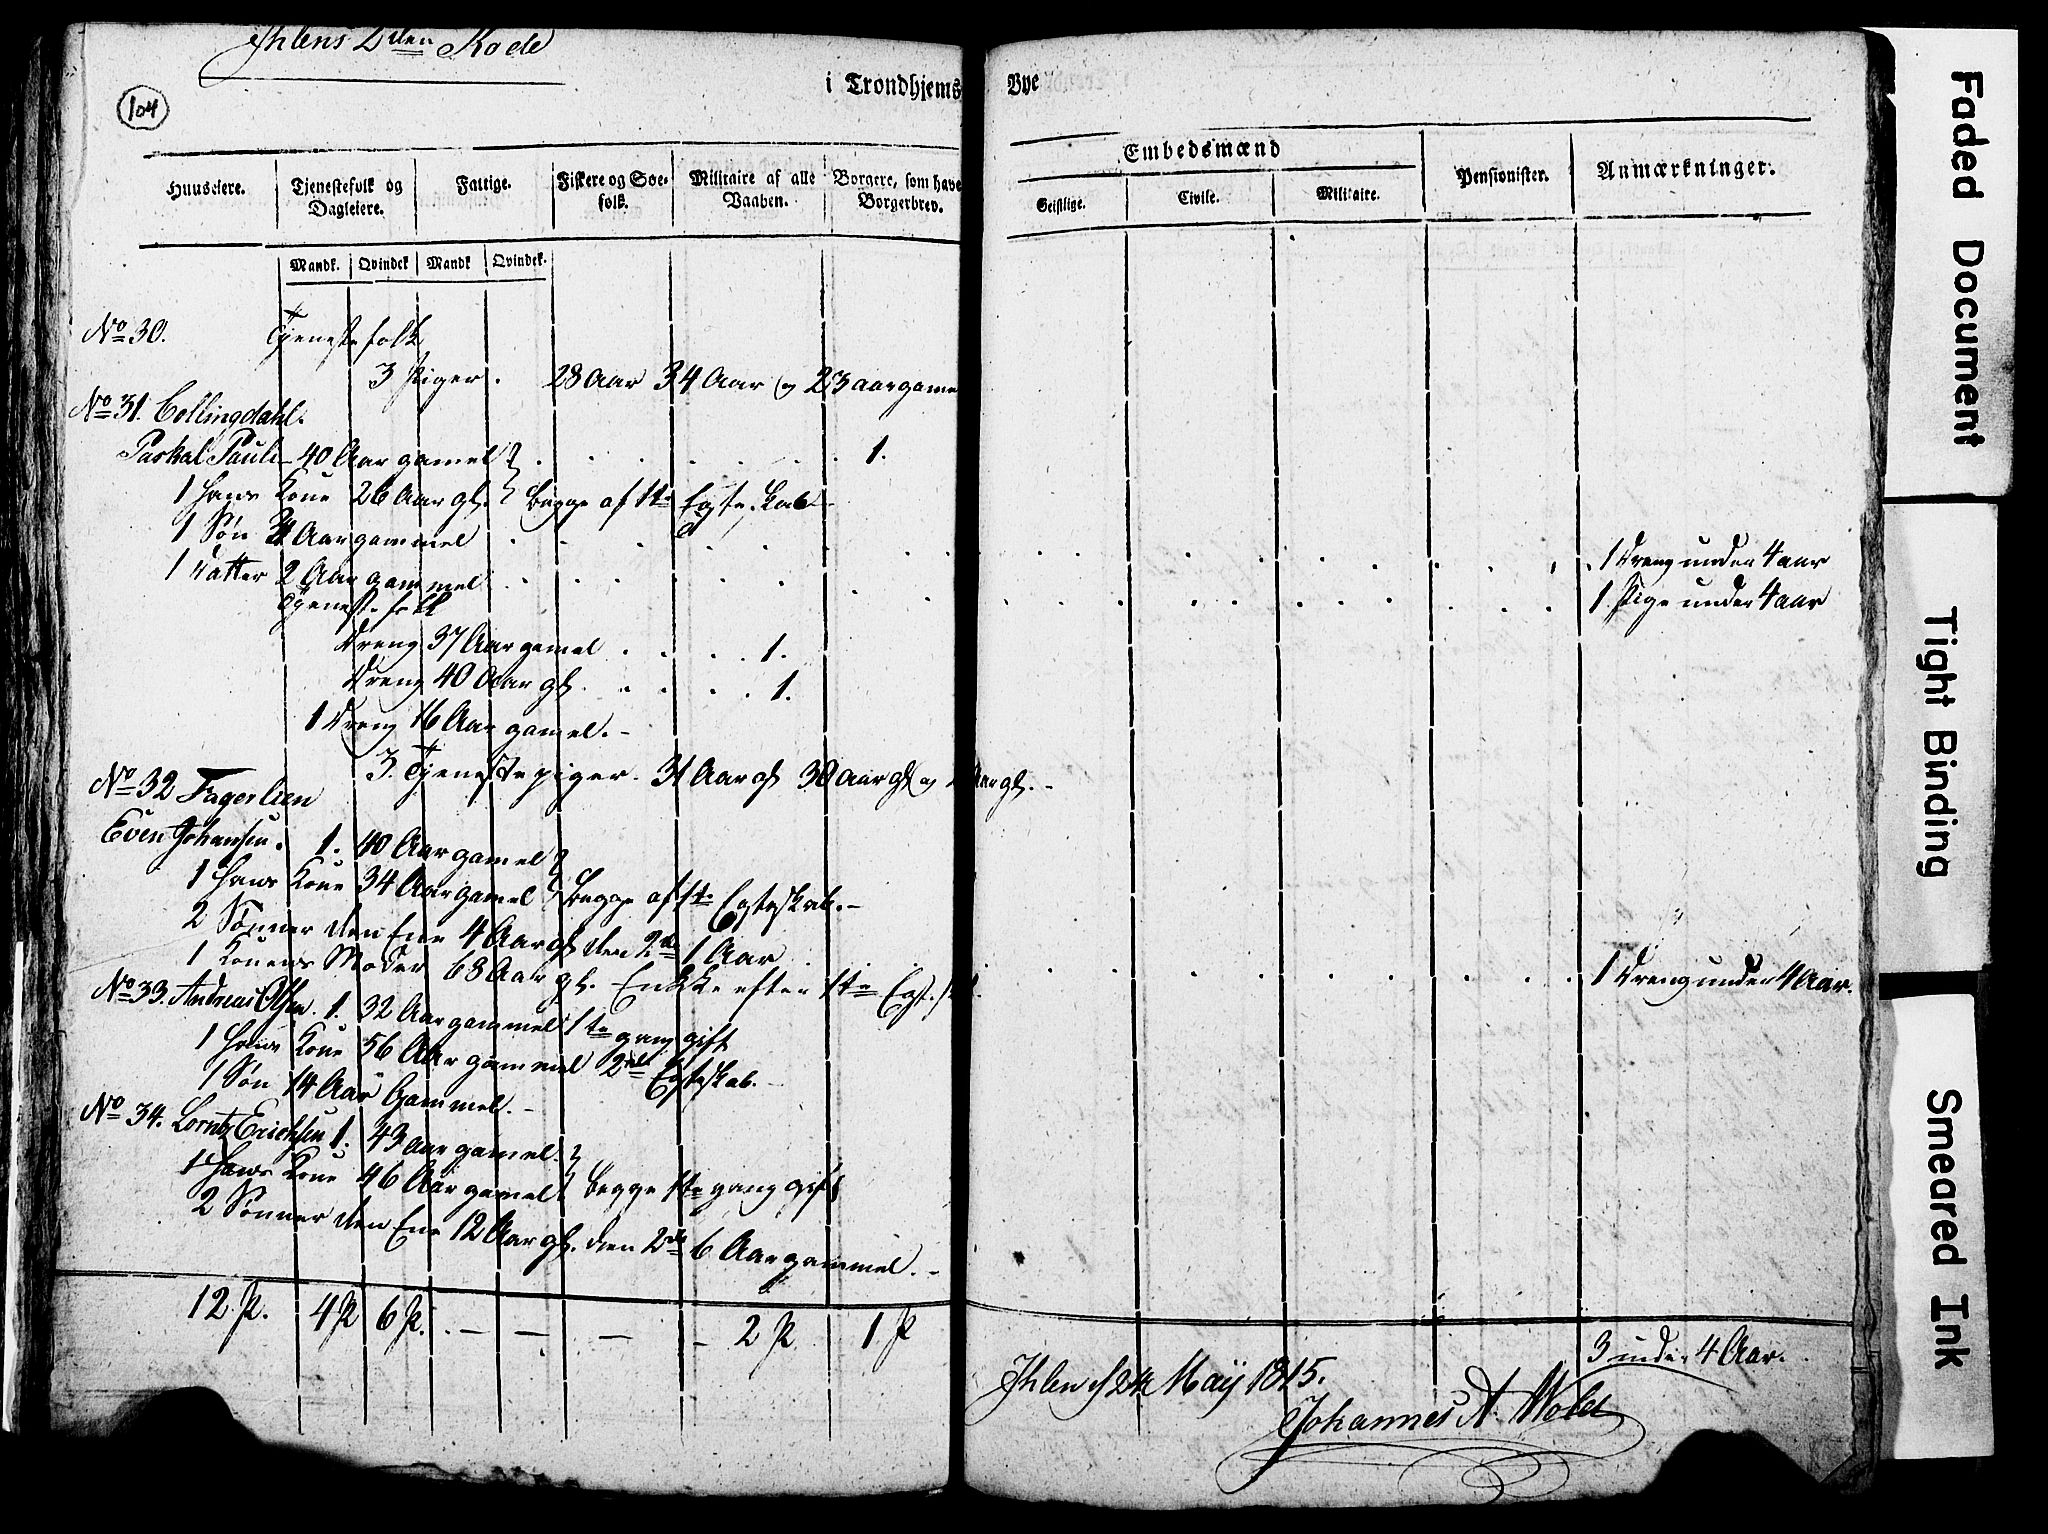 Ihlens 2den Rode
104
i Trondhjems Bye
Huuseiere.
Tjenestefolk og Dagleiere.
Fattige.
Fiskere og Søefolk.
Militaire af alle Vaaben.
Borgere, som have Borgerbrev.
Embedsmænd
Geistlige.
Civile.
Militaire.
Pensionister.
Anmærkninger.
Mandk. Qvindek Mandk Qvindek.
No 30. Tjenestefolk
3 Piger. 28 Aar 34 Aar og 23 aar gamel
No 31. Collingdahl.
Paskal Pauli 40 Aar gamel 1.
1 hans Kone 26 Aar gl. begge af 1te Egteskab
1 Søn Aar gammel 1 Dreng under 4 aar
1 datter 2 Aar gammel 1 Pige under 4 aar
Tjenestefolk
Dreng 37 Aar gamel 1.
Dreng 40 Aar gl. 1.
1 Dreng 16 Aar gamel.
3. Tjenestepiger. 31 Aar gl 30 aar gl og Aar gl.
No 32 Fagerlien
Even Johansen. 1. 40 Aar gamel
1 hans Kone 34 Aar gamel begge af 1te Egteskab.
2 Sønner den Ene 4 Aar gl den 2de 1 Aar 1 Dreng under 4 Aar.
1 Konens Moder 68 Aar gl. Enkke efter 1te
No 33. Andreas Olsen. 1. 32 Aar gammel 1te gang gift
1 hans Kone 56 Aar gammel 2det Egteskab.
1 Søn 14 Aar Gammel.
No 34. Lorntz Erichsen 1. 43 aar gamel.
1 hans Kone 46 Aar gamel begge 1te gang gift
2 Sønner den Ene 12 Aar gl. den 2de 6 Aar gammel.
12 P. 4 P 6 P. — — — — 2 P 1 P 3 under 4 Aar.
Ihlen d 24 Maij 1815.
Johannes A. Wold
Faded Document
Tight Binding
Smeared Ink